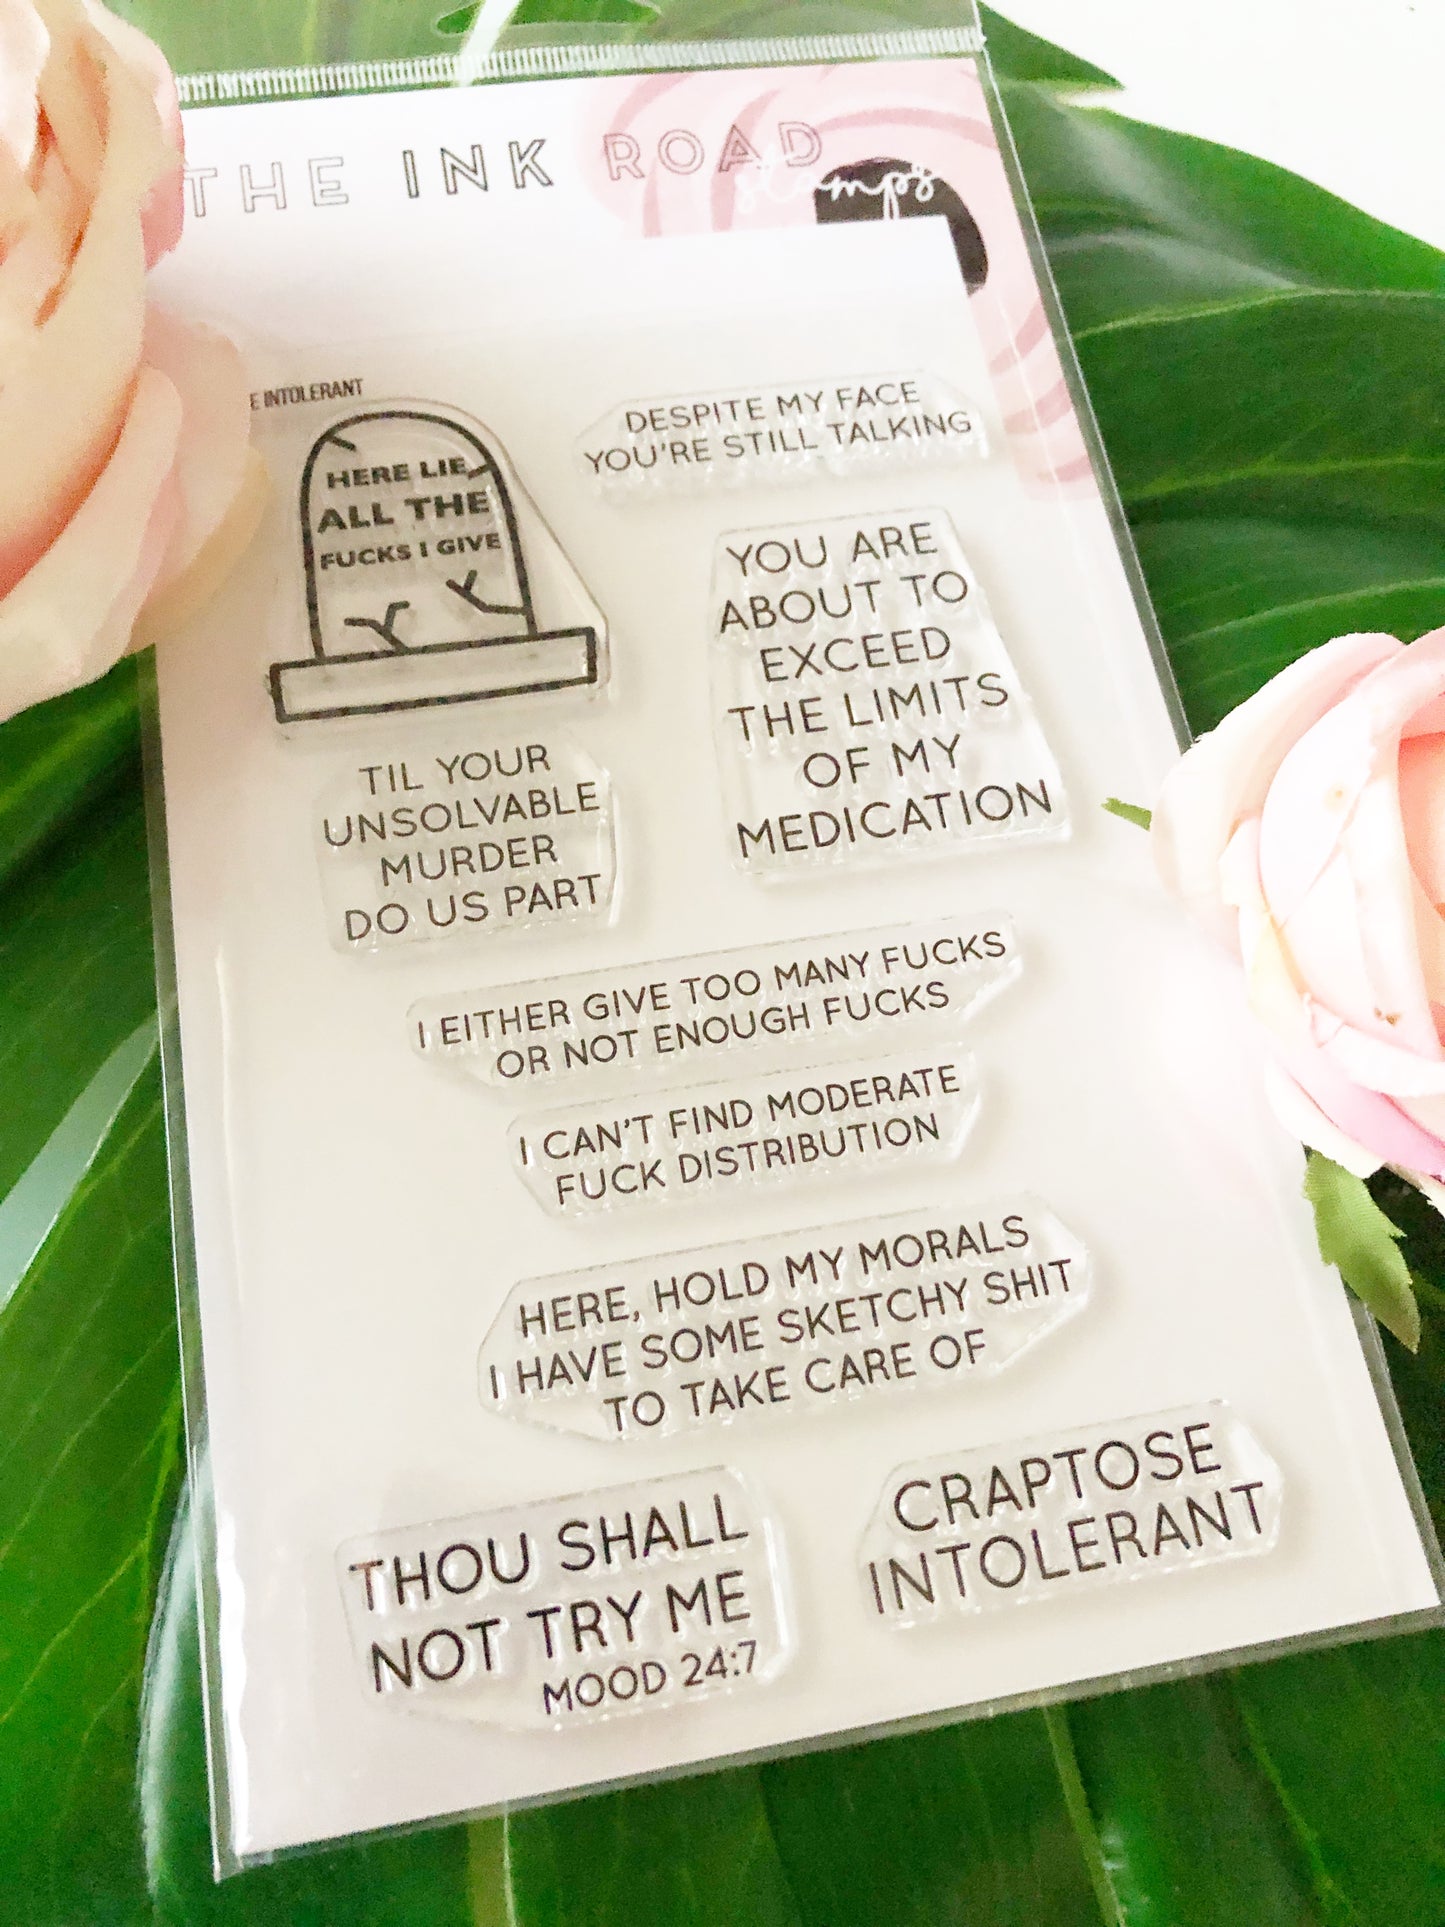 THE INK ROAD
stamps
E INTOLERANT
HERE LIE
ALL THE
FUCKS I GIVE
DESPITE MY FACE
YOU'RE STILL TALKING
YOU ARE
ABOUT TO
EXCEED
THE LIMITS
OF MY
MEDICATION
TIL YOUR
UNSOLVABLE
MURDER
DO US PART
I EITHER GIVE TOO MANY FUCKS
OR NOT ENOUGH FUCKS
I CAN'T FIND MODERATE
FUCK DISTRIBUTION
HERE, HOLD MY MORALS
I HAVE SOME SKETCHY SHIT
TO TAKE CARE OF
THOU SHALL
NOT TRY ME
MOOD 24:7
CRAPTOSE
INTOLERANT